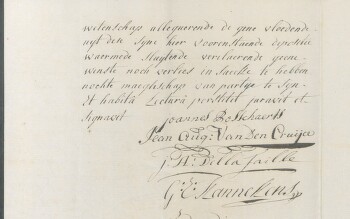 wetenschap alleguerende de gene vloeiende
uyt dese syne hier voorenstaende depositie
waermede sluytende verclaerende geene
winste noch verlies in saecke te hebben
nochte maegschap van partye te syn
et habita Lectura perstitit juravit et
Signavit
Joannes Bosschaerts
Jean Aug: Van Den Cruyce
J. Della Faille